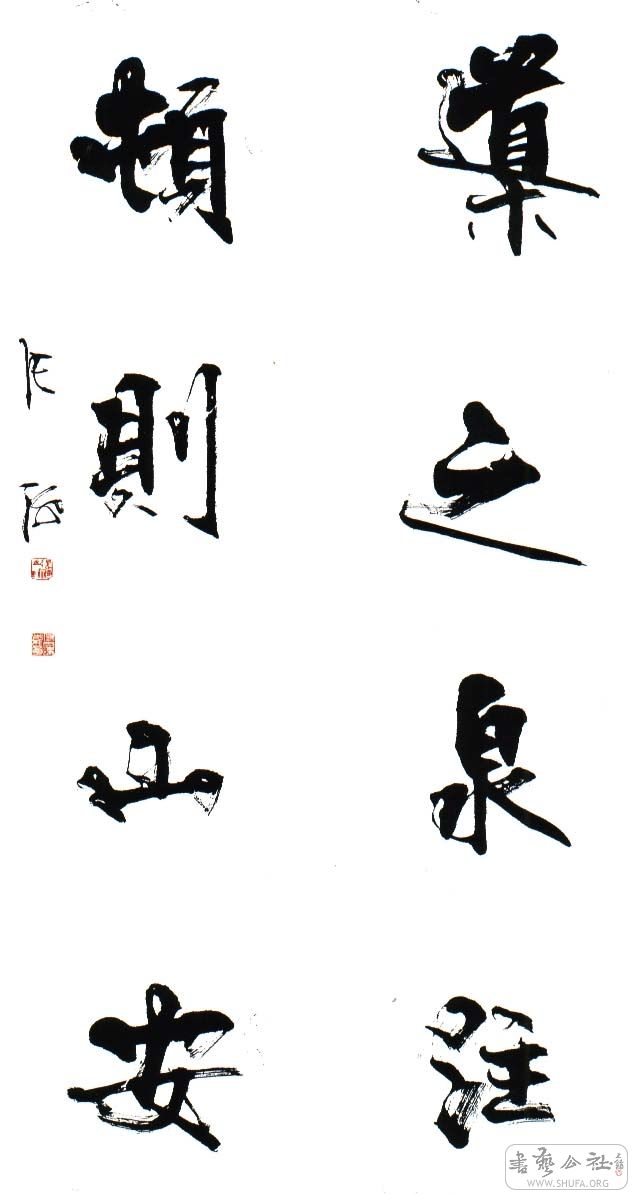 導之泉注
頓則山安
張海
書藝公社
WWW.SHUFA.ORG